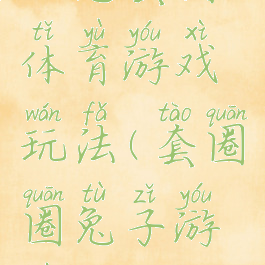 tǐ yù yóu xì
体育游戏
wán fǎ tào quān
玩法(套圈
quān tù zǐ yóu
圈兔子游